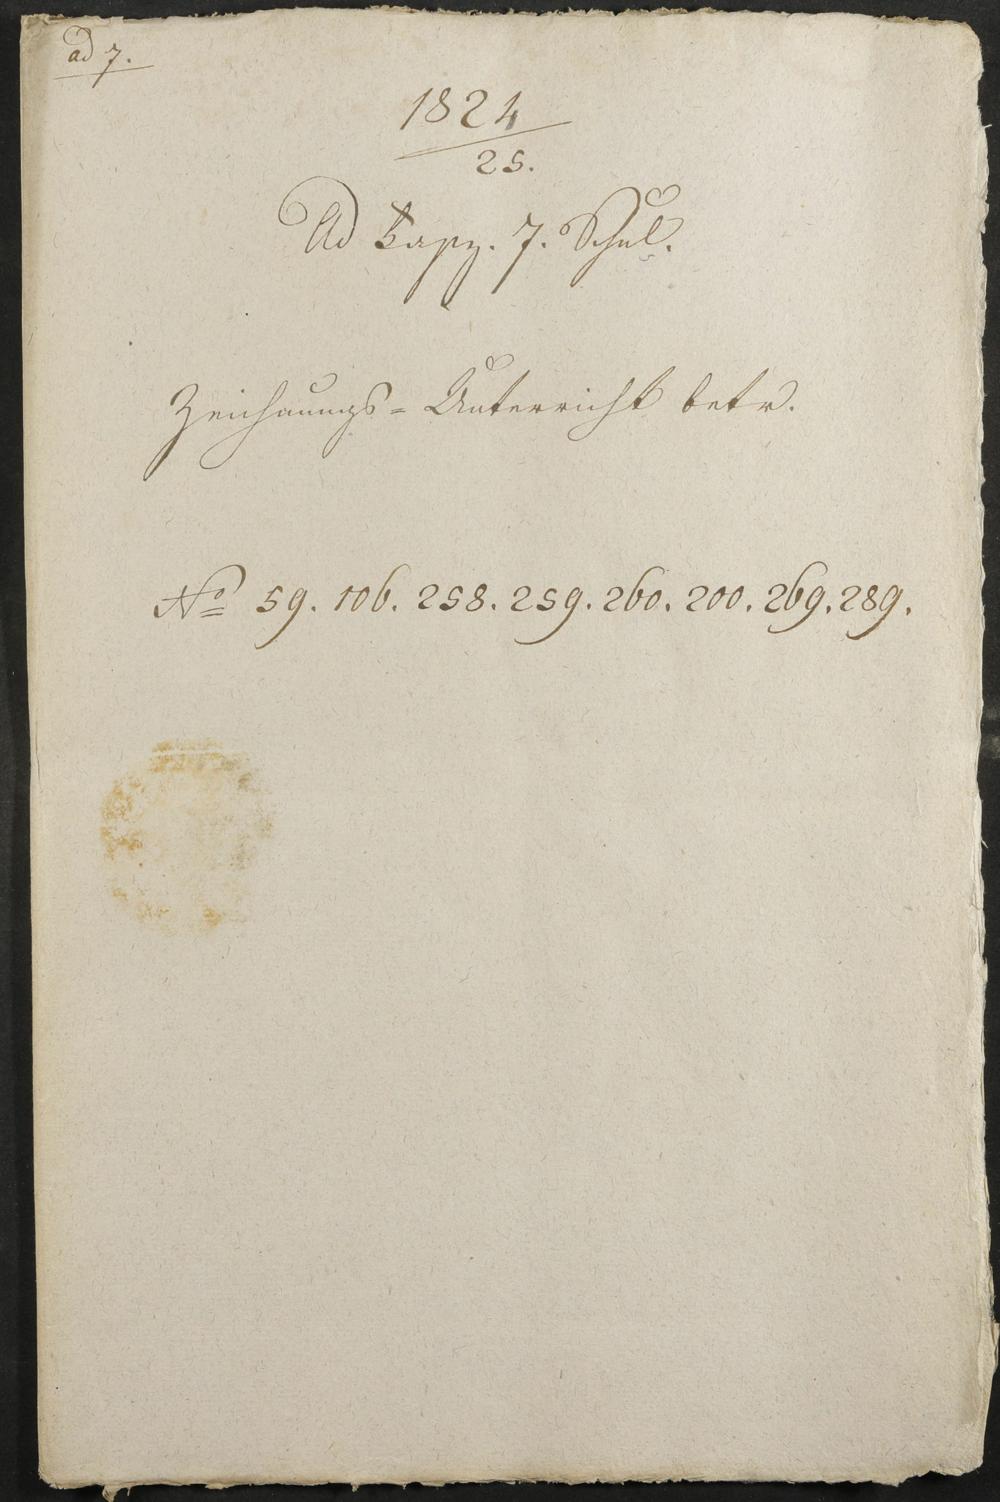 ad 7.
1824
25.
Ad Fasz. 7. Schul.
Zeichnungs= Unterricht betr.
No 59. 106. 258. 259. 260. 200. 269. 289.